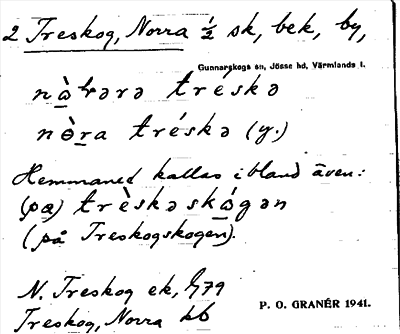 2 Treskog, Norra ½ sk, bek, by,
Gunnarskogs sn, Jösse hd, Värmlands l.
treskə
nòra tréskə (y.)
Hemmanet kallas ibland även:
(pæ) trèskəskógən
(på Treskogskogen).
N. Treskog ek, 79
Treskog, Norra kb
P. O. GRANÉR 1941.